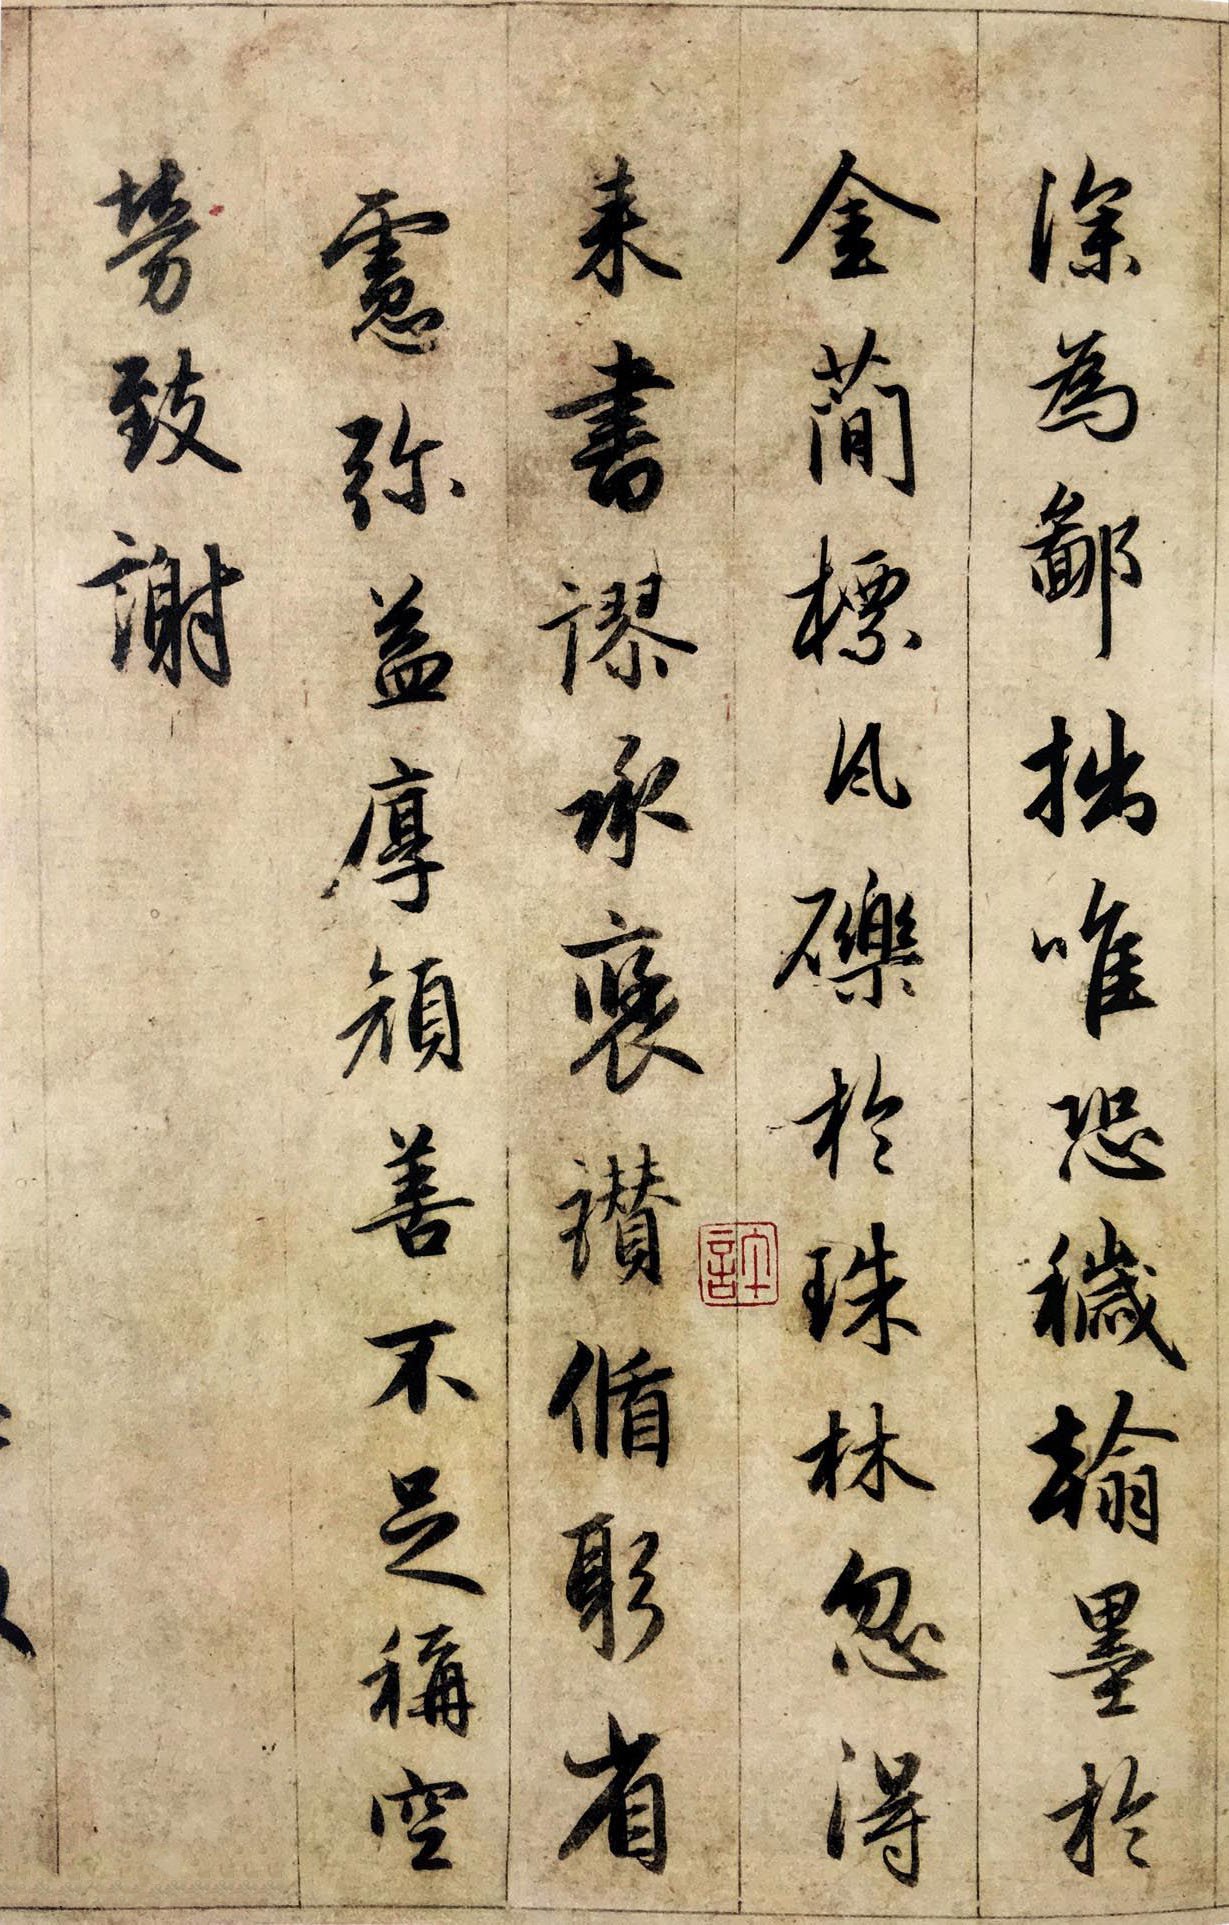 深為鄙拙唯恐穢翰墨於
金蕳標風礫於珠林忽得
来書謬承褒讃循躬省
慮弥益厚顔善不足稱空
勞致謝